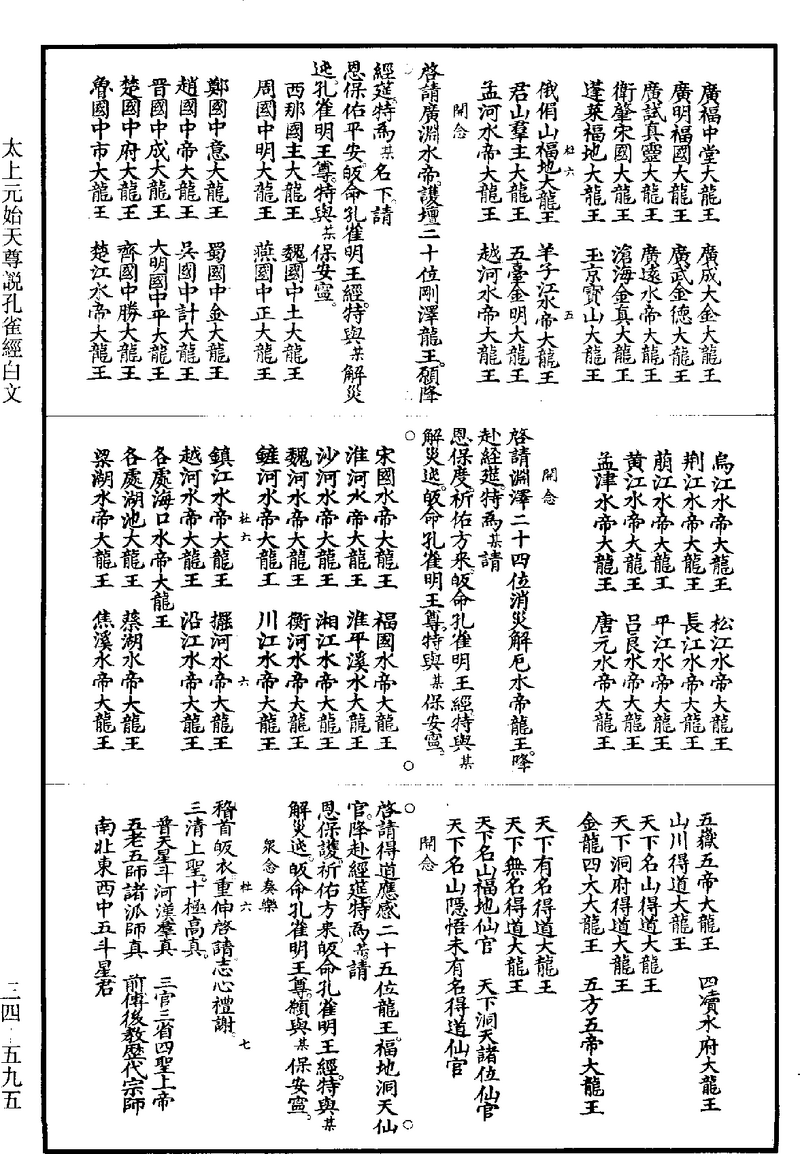 太上元始天尊說孔雀經白文
三四·五九五
廣福中堂大龍王　廣成大金大龍王
廣明福國大龍王　廣武金德大龍王
廣試真靈大龍王　廣遠水帝大龍王
衛肇宋國大龍王　滄海金真大龍王
蓬萊福地大龍王　玉京寶山大龍王
杜六　五
俄俏山福地大龍王　羊子江水帝大龍王
君山羣主大龍王　五臺金明大龍王
孟河水帝大龍王　越河水帝大龍王
開念
啓請廣淵水帝護壇二十位剛澤龍王願降
經筵特為某名下請
恩保佑平安皈命孔雀明王經特與某解災
迍孔雀明王尊特與某保安寧
西那國主大龍王　魏國中土大龍王
周國中明大龍王　燕國中正大龍王
鄭國中意大龍王　蜀國中金大龍王
趙國中帝大龍王　吳國中計大龍王
晋國中成大龍王　大明國中平大龍王
楚國中府大龍王　齊國中勝大龍王
魯國中市大龍王　楚江水帝大龍王
烏江水帝大龍王　松江水帝大龍王
荆江水帝大龍王　長江水帝大龍王
萠江水帝大龍王　平江水帝大龍王
黃江水帝大龍王　呂良水帝大龍王
孟津水帝大龍王　唐元水帝大龍王
開念
啓請淵澤二十四位消災解厄水帝龍王降
赴經筵特為某請
恩保度祈佑方來皈命孔雀明王經特與某
解災迍皈命孔雀明王尊特與某保安寧
宋國水帝大龍王　福國水帝大龍王
淮河水帝大龍王　淮平溪水大龍王
沙河水帝大龍王　湘江水帝大龍王
魏河水帝大龍王　衡河水帝大龍王
鏟河水帝大龍王　川江水帝大龍王
杜六　六
鎮江水帝大龍王　擺河水帝大龍王
越河水帝大龍王　沿江水帝大龍王
各處海口水帝大龍王
各處湖池大龍王　蔡湖水帝大龍王
梁湖水帝大龍王　焦溪水帝大龍王
五嶽五帝大龍王　四瀆水府大龍王
山川得道大龍王
天下名山得道大龍王
天下洞府得道大龍王
金龍四大大龍王　五方五帝大龍王
天下有名得道大龍王
天下無名得道大龍王
天下名山福地仙官　天下洞天諸位仙官
天下名山隱悟未有名得道仙官
開念
啓請得道應感二十五位龍王福地洞天仙
官降赴經筵特為某請
恩保護祈佑方來皈命孔雀明王經特與某
解災迍皈命孔雀明王尊願與某保安寧
衆念奏樂
杜六　七
稽首皈衣重伸啓請志心禮謝
三清上聖十極高真
普天星斗河漢羣真　三官三省四聖上帝
五老五師諸派師真　前傳後教歷代宗師
南北東西中五斗星君